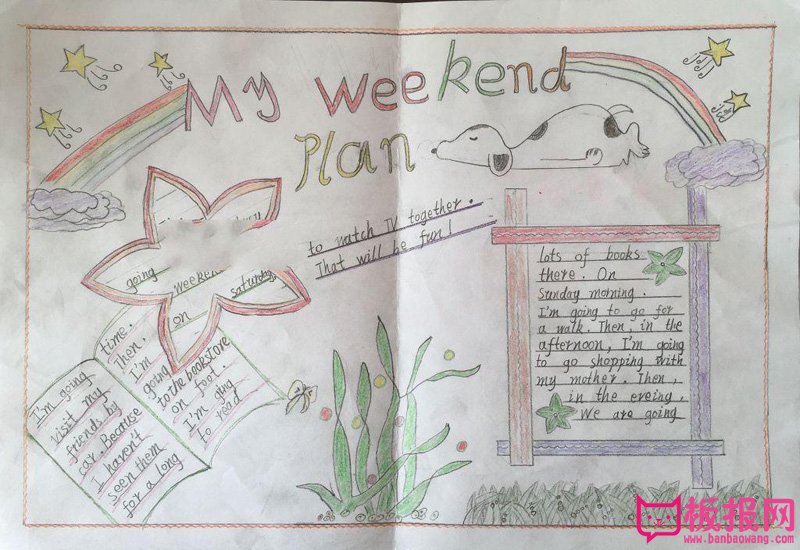 My weekend
Plan
going weekend
on saturday
I'm going
visit my
friends by
car. Because
I haven't
seen them
for a long
time.
Then.
I'm
going
to the bookstore
on foot.
I'm ging
to read
lots of books
there. On
Sunday morning.
I'm going to go for
a walk. Then, in the
afternoon, I'm going
to go shopping with
my mother. Then,
in the eveing,
We are going
to watch TV together.
That will be fun!
板报网
www.banbaowang.com